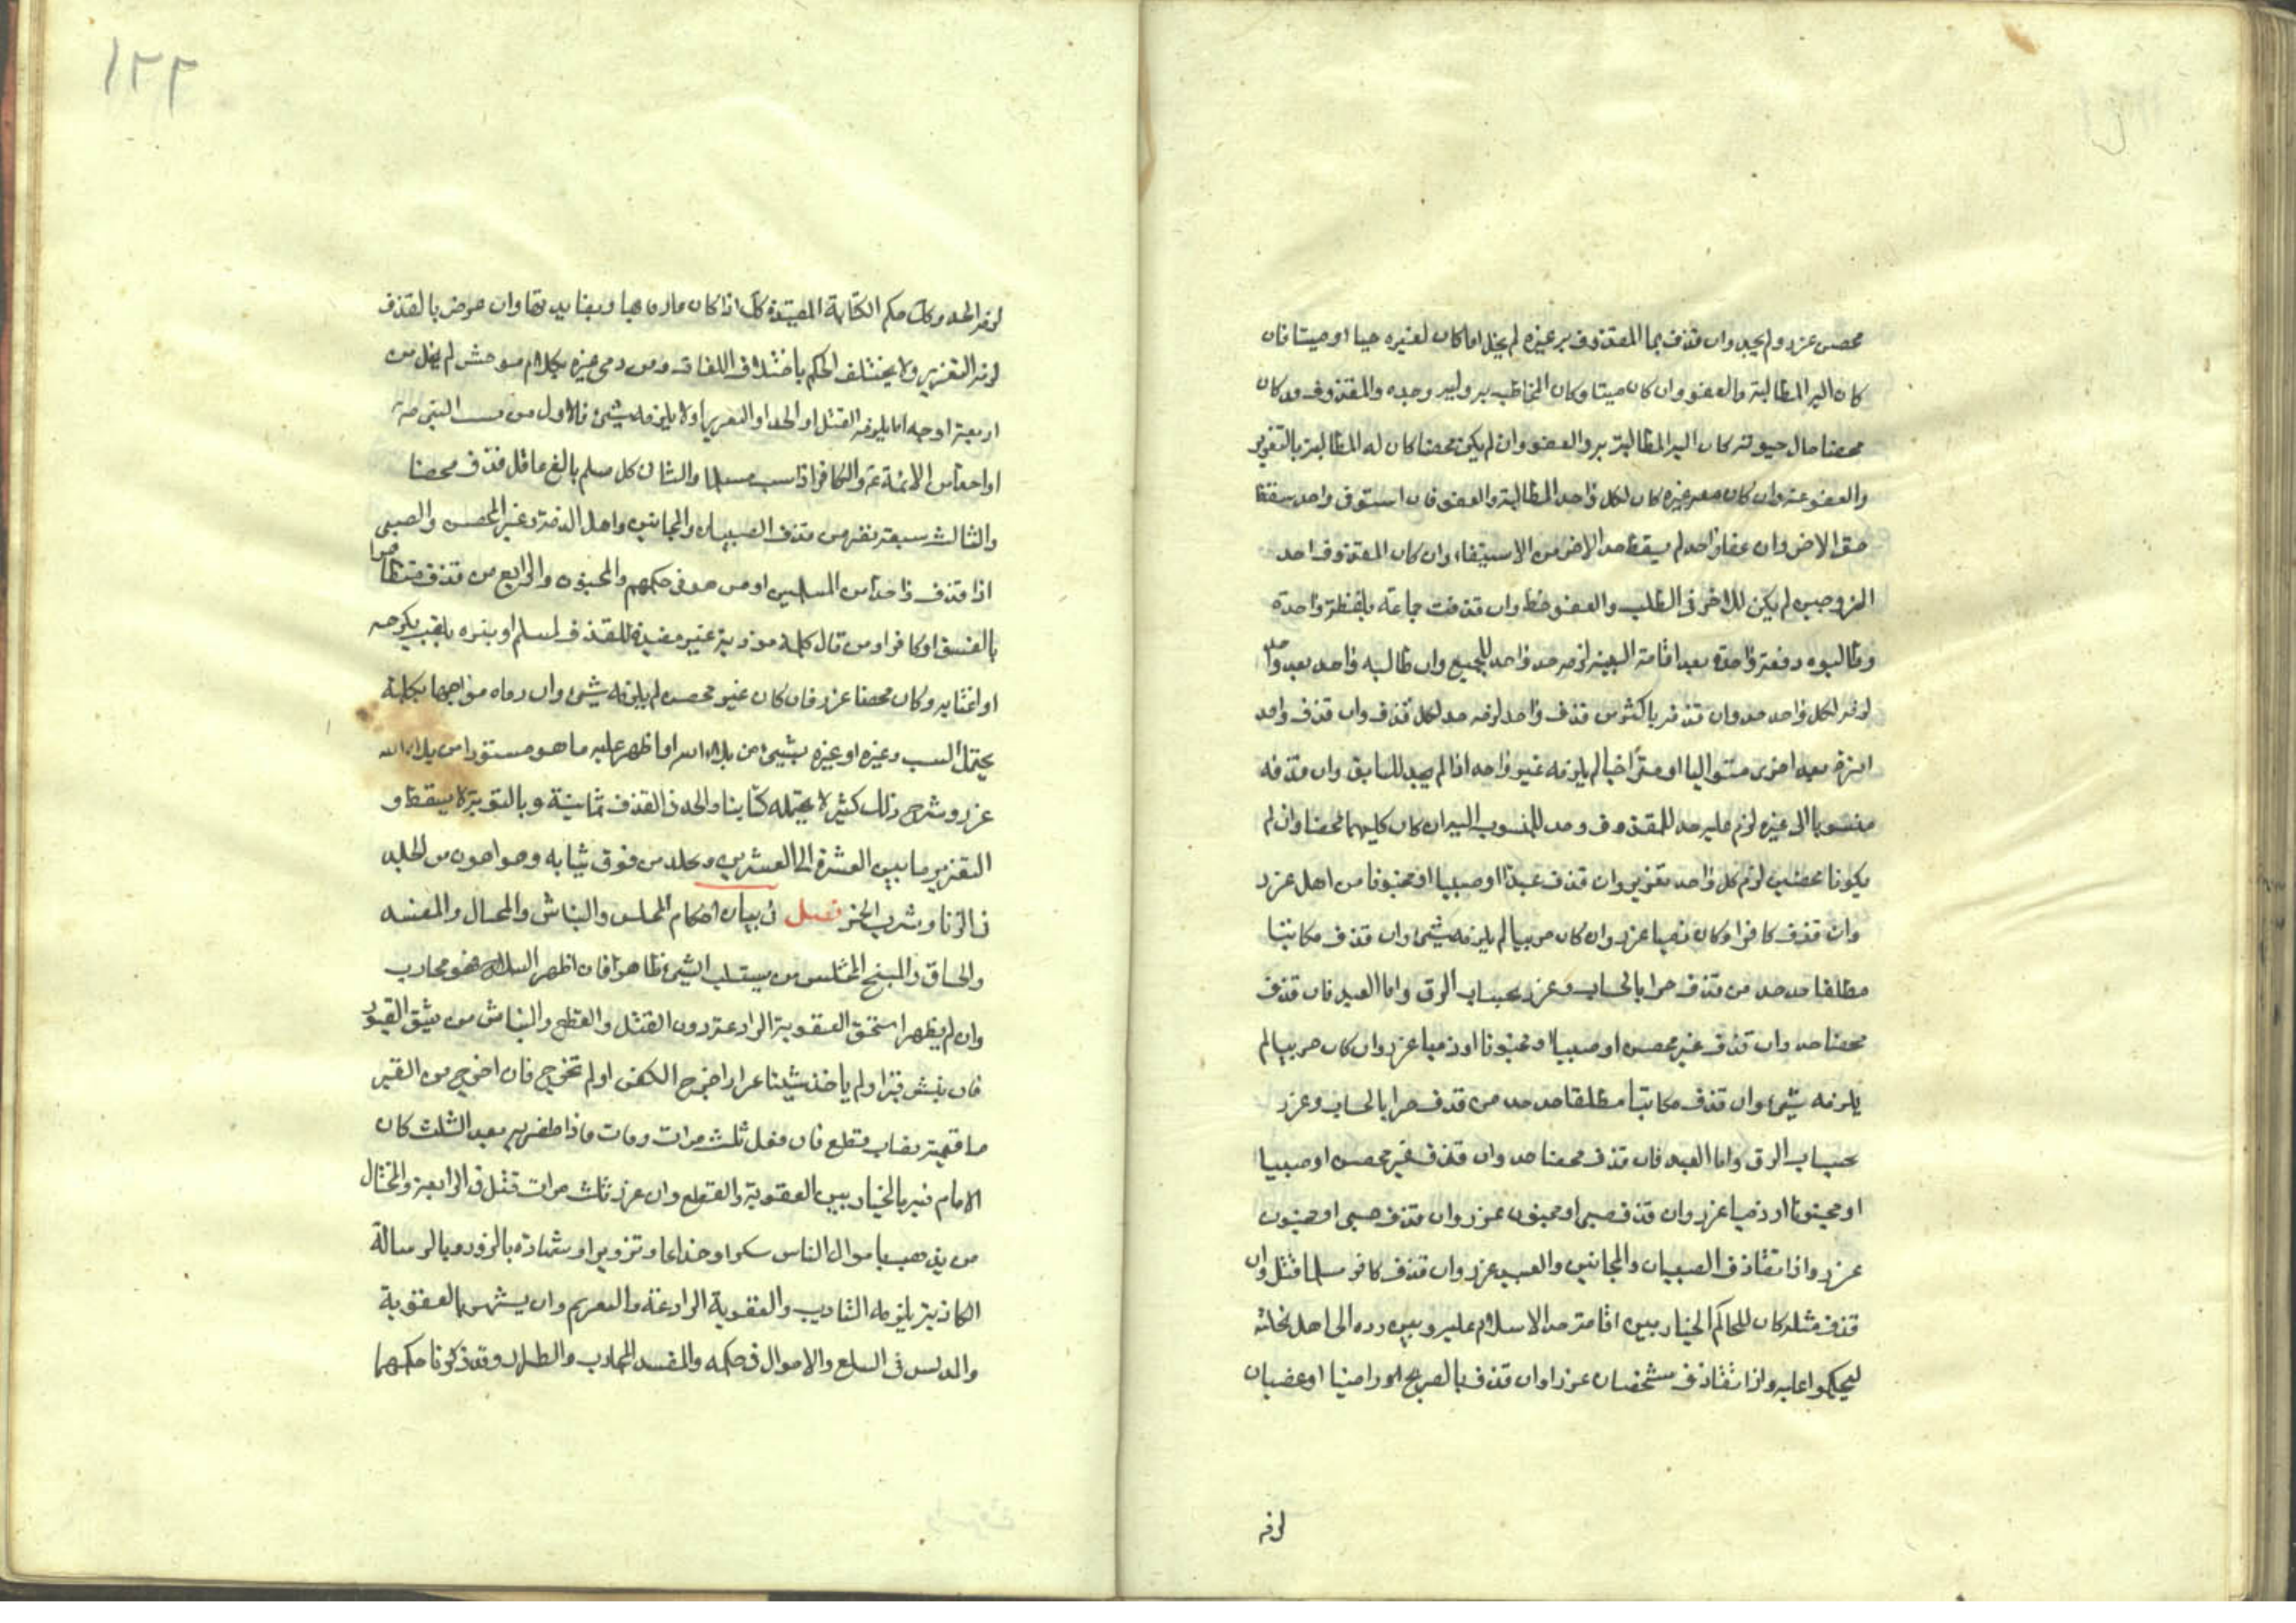 محصن عزر ولم يحد وان قذف بما المقذوف به غيره لم يخل اما كان لغيره حيا او ميتا فان
كان اليه المطالبة والعفو وان كان ميتا وكان المخاطب به وليه وحده والمقذوف قد كان
محصنا حال حيوته كان اليه المطالبة به والعفو وان لم يكن محصنا كان له المطالبة بالتعزير
والعفو عنه وان كان معه غيره كان لكل واحد المطالبة والعفو فان استوفى واحد سقط
حق الاخر وان عفا واحد لم يسقط حد الاخر من الاستيفاء وان كان المقذوف احد
الزوجين لم يكن للاخر فى الطلب والعفو حظ وان قذفت جماعة بلفظة واحدة
وطالبوه دفعة واحدة بعد اقامة البينة لزمه حد واحد للجميع وان طالبه واحد بعد واحد
لزمه لكل واحد حد وان قذفه باكثر من قذف واحد لزمه حد لكل قذف وان قذف واحد
مرة بعد اخرى متواليا او متراخيا لم يلزمه غير واحد اذا لم يحد للسابق وان قذفه
منسوبا الى غيره لزم عليه حد للمقذوف وحد للمنسوب اليه ان كان كليهما محصنا وان لم
يكونا محصنين لزم كل واحد تعزير وان قذف عبدا او صبيا او مجنونا من اهل عزر
وان قذف كافرا وكان ذميا عزر وان كان حربيا لم يلزمه شئ وان قذف مكاتبا
مطلقا حد حد من قذف حرا بالحساب وعزر بحساب الرق واما العبد فان قذف
محصنا حد وان قذف غير محصن او صبيا او مجنونا او ذميا عزر وان كان حربيا لم
يلزمه شئ وان قذف مكاتبا مطلقا حد حد من قذف حرا بالحساب وعزر
بحساب الرق واما العبد فان قذف محصنا حد وان قذف غير محصن او صبيا
او مجنونا او ذميا عزر وان قذف صبى او مجنون عزر وان قذف صبى او مجنون
عزر واذا تقاذف الصبيان والمجانين والعبيد عزر وان قذف كافر مسلما قتل وان
قذف مثله كان للحاكم الخيار بين اقامة حد الاسلام عليه وبين رده الى اهل نحلته
ليحكموا عليه واذا تقاذف شخصان عزرا وان قذف بالصريح راضيا او غضبان
لزمه
١٢٢
لزمه الحد وكك حكم الكناية المفيدة كك اذا كان عارفا بها وبفايدتها وان عرض بالقذف
لزمه التعزير ولا يختلف الحكم باختلاف اللغات ومن رمى غيره بكلام موحش لم يخل من
اربعة اوجه اما يلزمه القتل او الحد او التعزير او لا يلزمه شئ فالاول من سب النبى ص
او احدا من الائمة ع والكافر اذا سب مسلما والثانى كل مسلم بالغ عاقل قذف محصنا
والثالث سبعة نفر من قذف الصبيان والمجانين واهل الذمة وغير المحصن والصبى
اذا قذف واحدا من المسلمين او من هو فى حكمهم والمجنون والرابع من قذف متظاهرا
بالفسق او كافرا ومن قال كلمة موذية غير مفيدة للقذف لمسلم او نبزه بلقب يكرهه
او اغتابه وكان محصنا عزر فان كان غير محصن لم يلزمه شئ وان رماه مواجها بكلمة
يحتمل السب وغيره او عيره بشئ من بلاء الله او اظهر عليه ما هو مستور من بلاء الله
عزر وشرح ذلك كثير لا يحتمله كتابنا والحد فى القذف ثمانية وبالتوبة لا يسقط و
التعزير ما بين العشرة الى العشرين ويجلد من فوق ثيابه وهو اهون من الجلد
فى الزنا وشرب الخمر فصل فى بيان احكام المختلس والنباش والمحتال والمفسد
والخناق والمبنج المختلس من يستلب الشئ ظاهرا فان اظهر السلاح فهو محارب
وان لم يظهر استحق العقوبة الرادعة دون القتل والقطع والنباش من ينبش القبور
فان نبش قبرا ولم ياخذ شيئا عزر اخرج الكفن او لم تخرج فان اخرج من القبر
ما قيمته نصاب قطع فان فعل ثلث مرات وفات فاذا ظفر به بعد الثلث كان
الامام فيه بالخيار بين العقوبة والقطع وان عزر ثلث مرات قتل فى الرابعة والمحتال
من يذهب باموال الناس مكرا وخداعا وتزويرا وشهادة بالزور وبالرسالة
الكاذبة يلزمه التاديب والعقوبة الرادعة والتغريم وان يشهر بالعقوبة
والمدلس فى السلع والاموال فى حكمه والمفسد المحارب والطرار وقد ذكرنا حكمهما